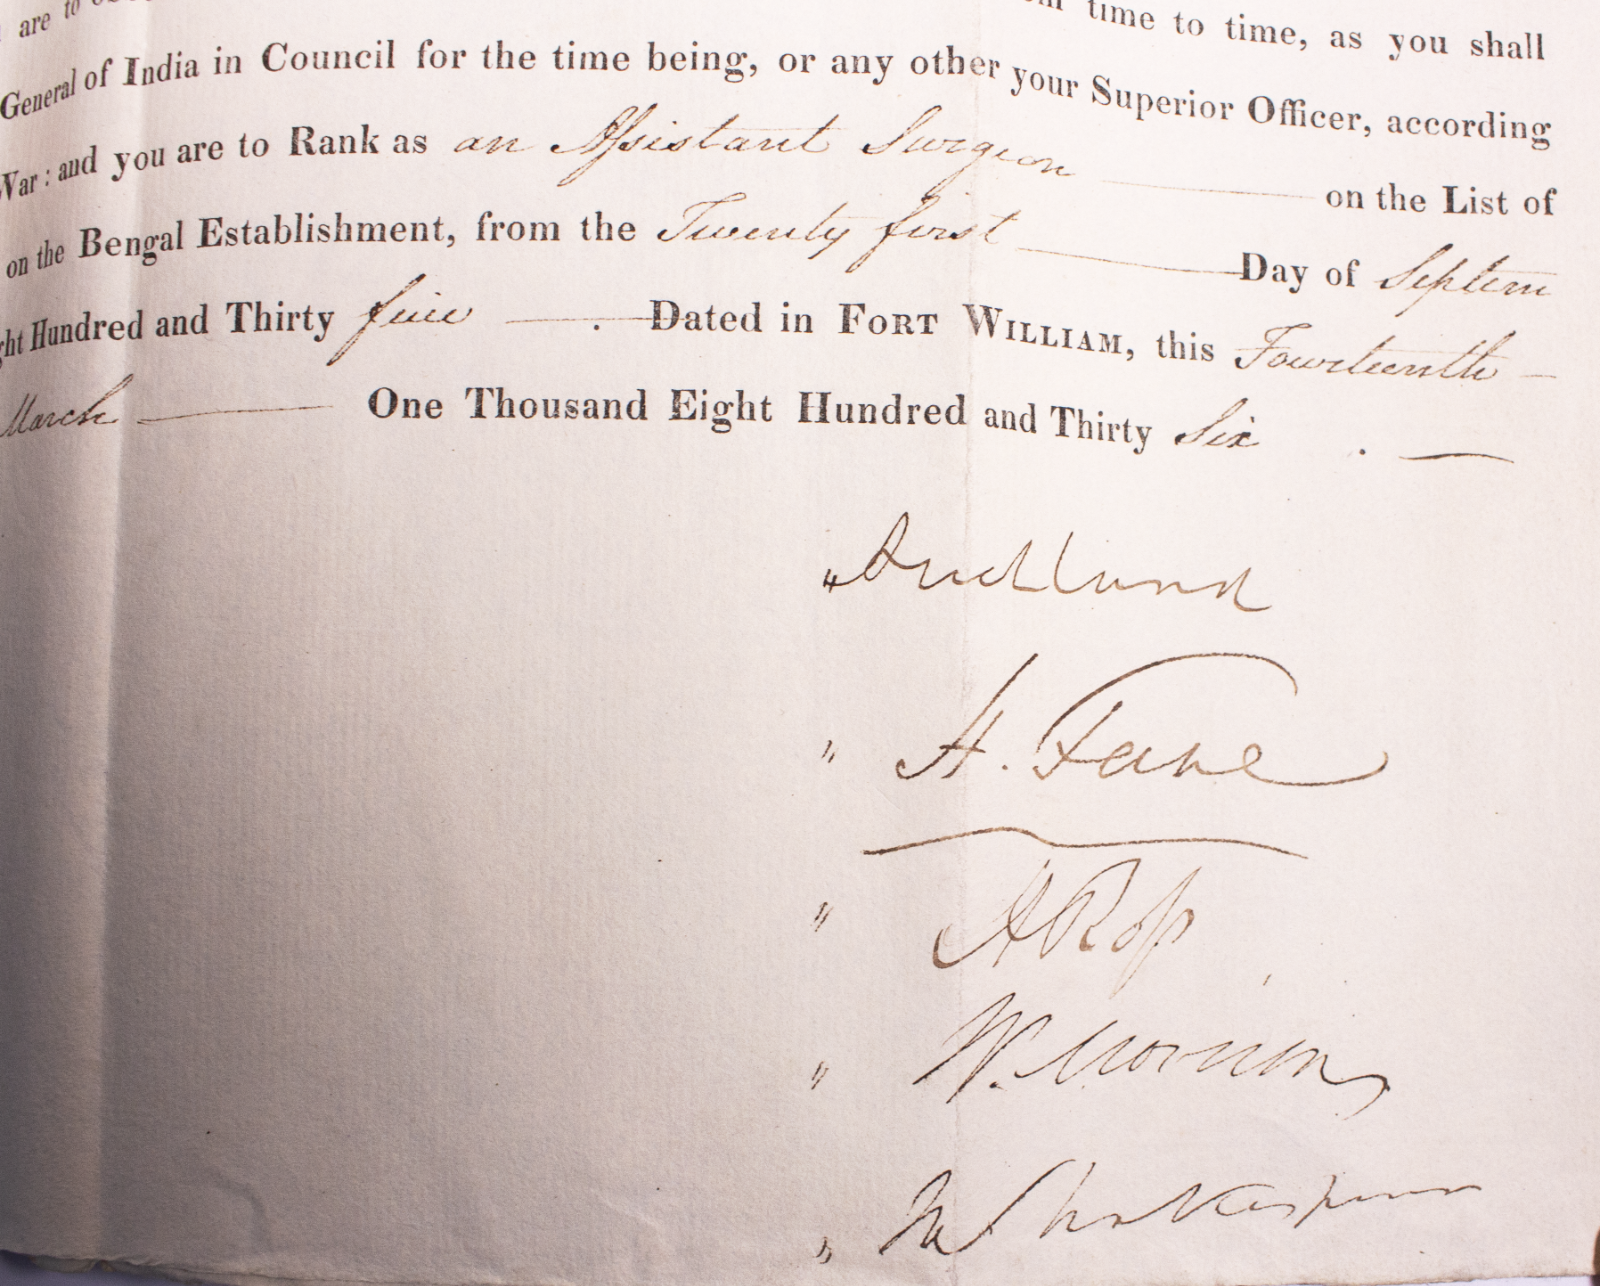 are to
time to time, as you shall
General of India in Council for the time being, or any other your Superior Officer, according
War: and you are to Rank as an Assistant Surgeon on the List of
on the Bengal Establishment, from the Twenty first Day of Septem
ght Hundred and Thirty five . Dated in FORT WILLIAM, this Fourteenth
March One Thousand Eight Hundred and Thirty Six .
" Auckland
" H. Fane
" A Ross
" W. Morison
" H Shakespear